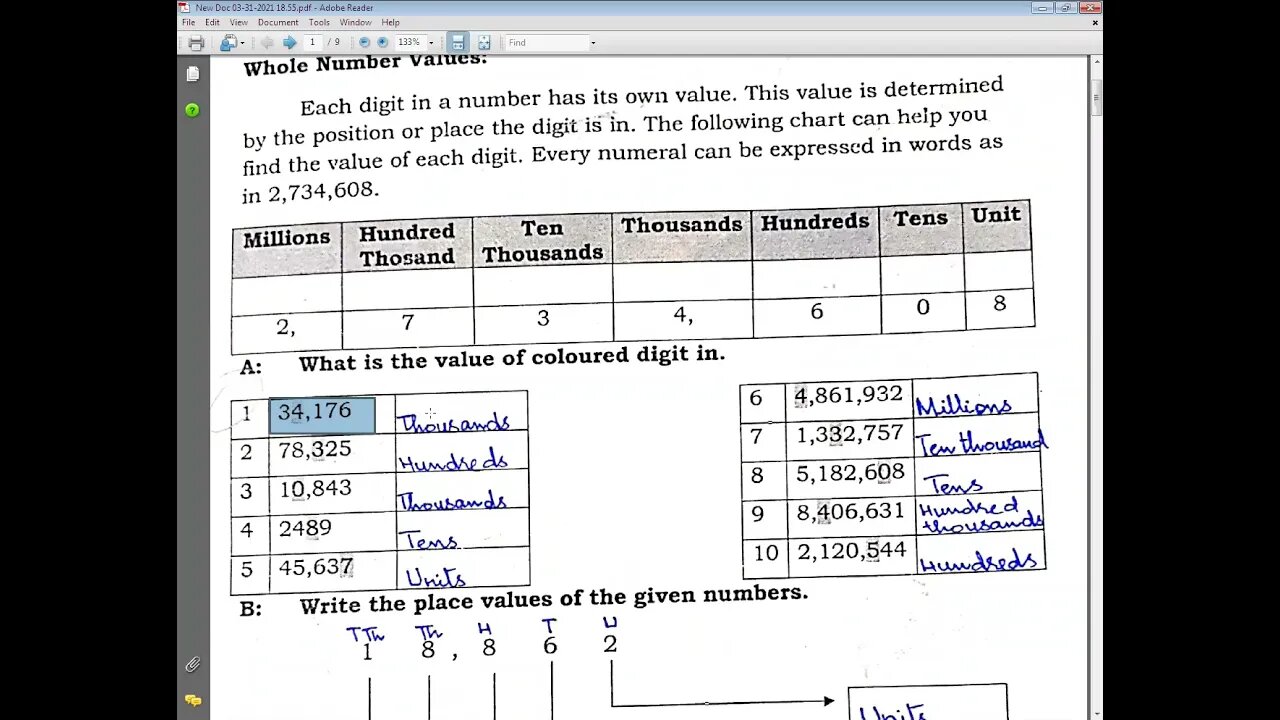 New Doc 03-31-2021 18.55.pdf - Adobe Reader
File Edit View Document Tools Window Help
1 / 9 133% Find
Whole Number Values:
Each digit in a number has its own value. This value is determined
by the position or place the digit is in. The following chart can help you
find the value of each digit. Every numeral can be expressed in words as
in 2,734,608.
Millions Hundred Thosand Ten Thousands Thousands Hundreds Tens Unit
2, 7 3 4, 6 0 8
A: What is the value of coloured digit in.
1 34,176 Thousands
2 78,325 Hundreds
3 10,843 Thousands
4 2489 Tens
5 45,637 Units
6 4,861,932 Millions
7 1,332,757 Ten thousand
8 5,182,608 Tens
9 8,406,631 Hundred thousands
10 2,120,544 Hundreds
B: Write the place values of the given numbers.
T Th Th H T U
1 8 , 8 6 2
Units